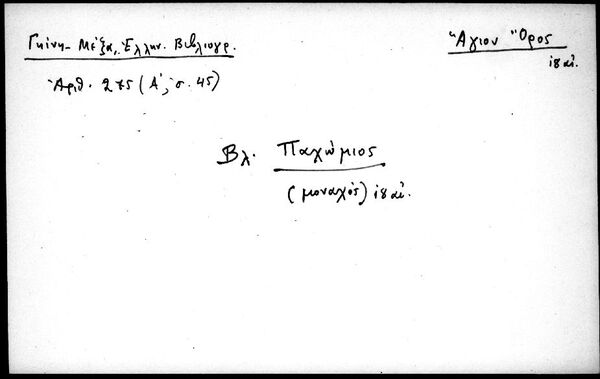 Γκίνη - Μέξα, Ἑλλην. Βιβλιογρ.
Ἅγιον Ὄρος
ιθ αἰ.
Ἀριθ. 275 (Α΄, σ. 45)
Βλ. Παχώμιος
(μοναχὸς) ιθ αἰ.